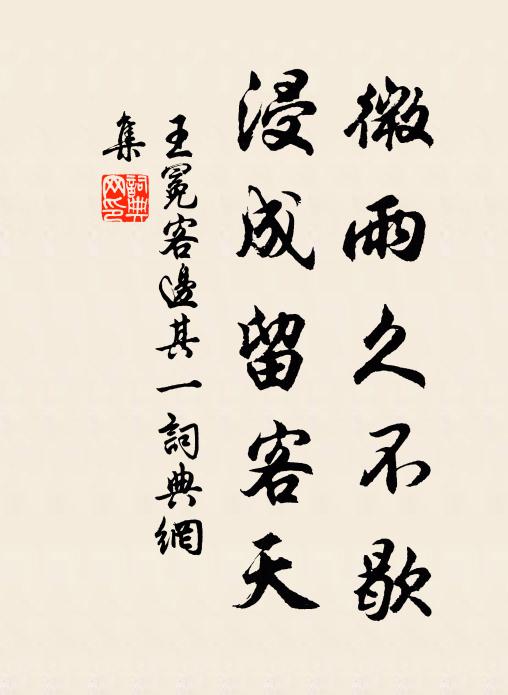 微雨久不歇
浸成留客天
王冕客邊其一詞典網
集
詞典網印